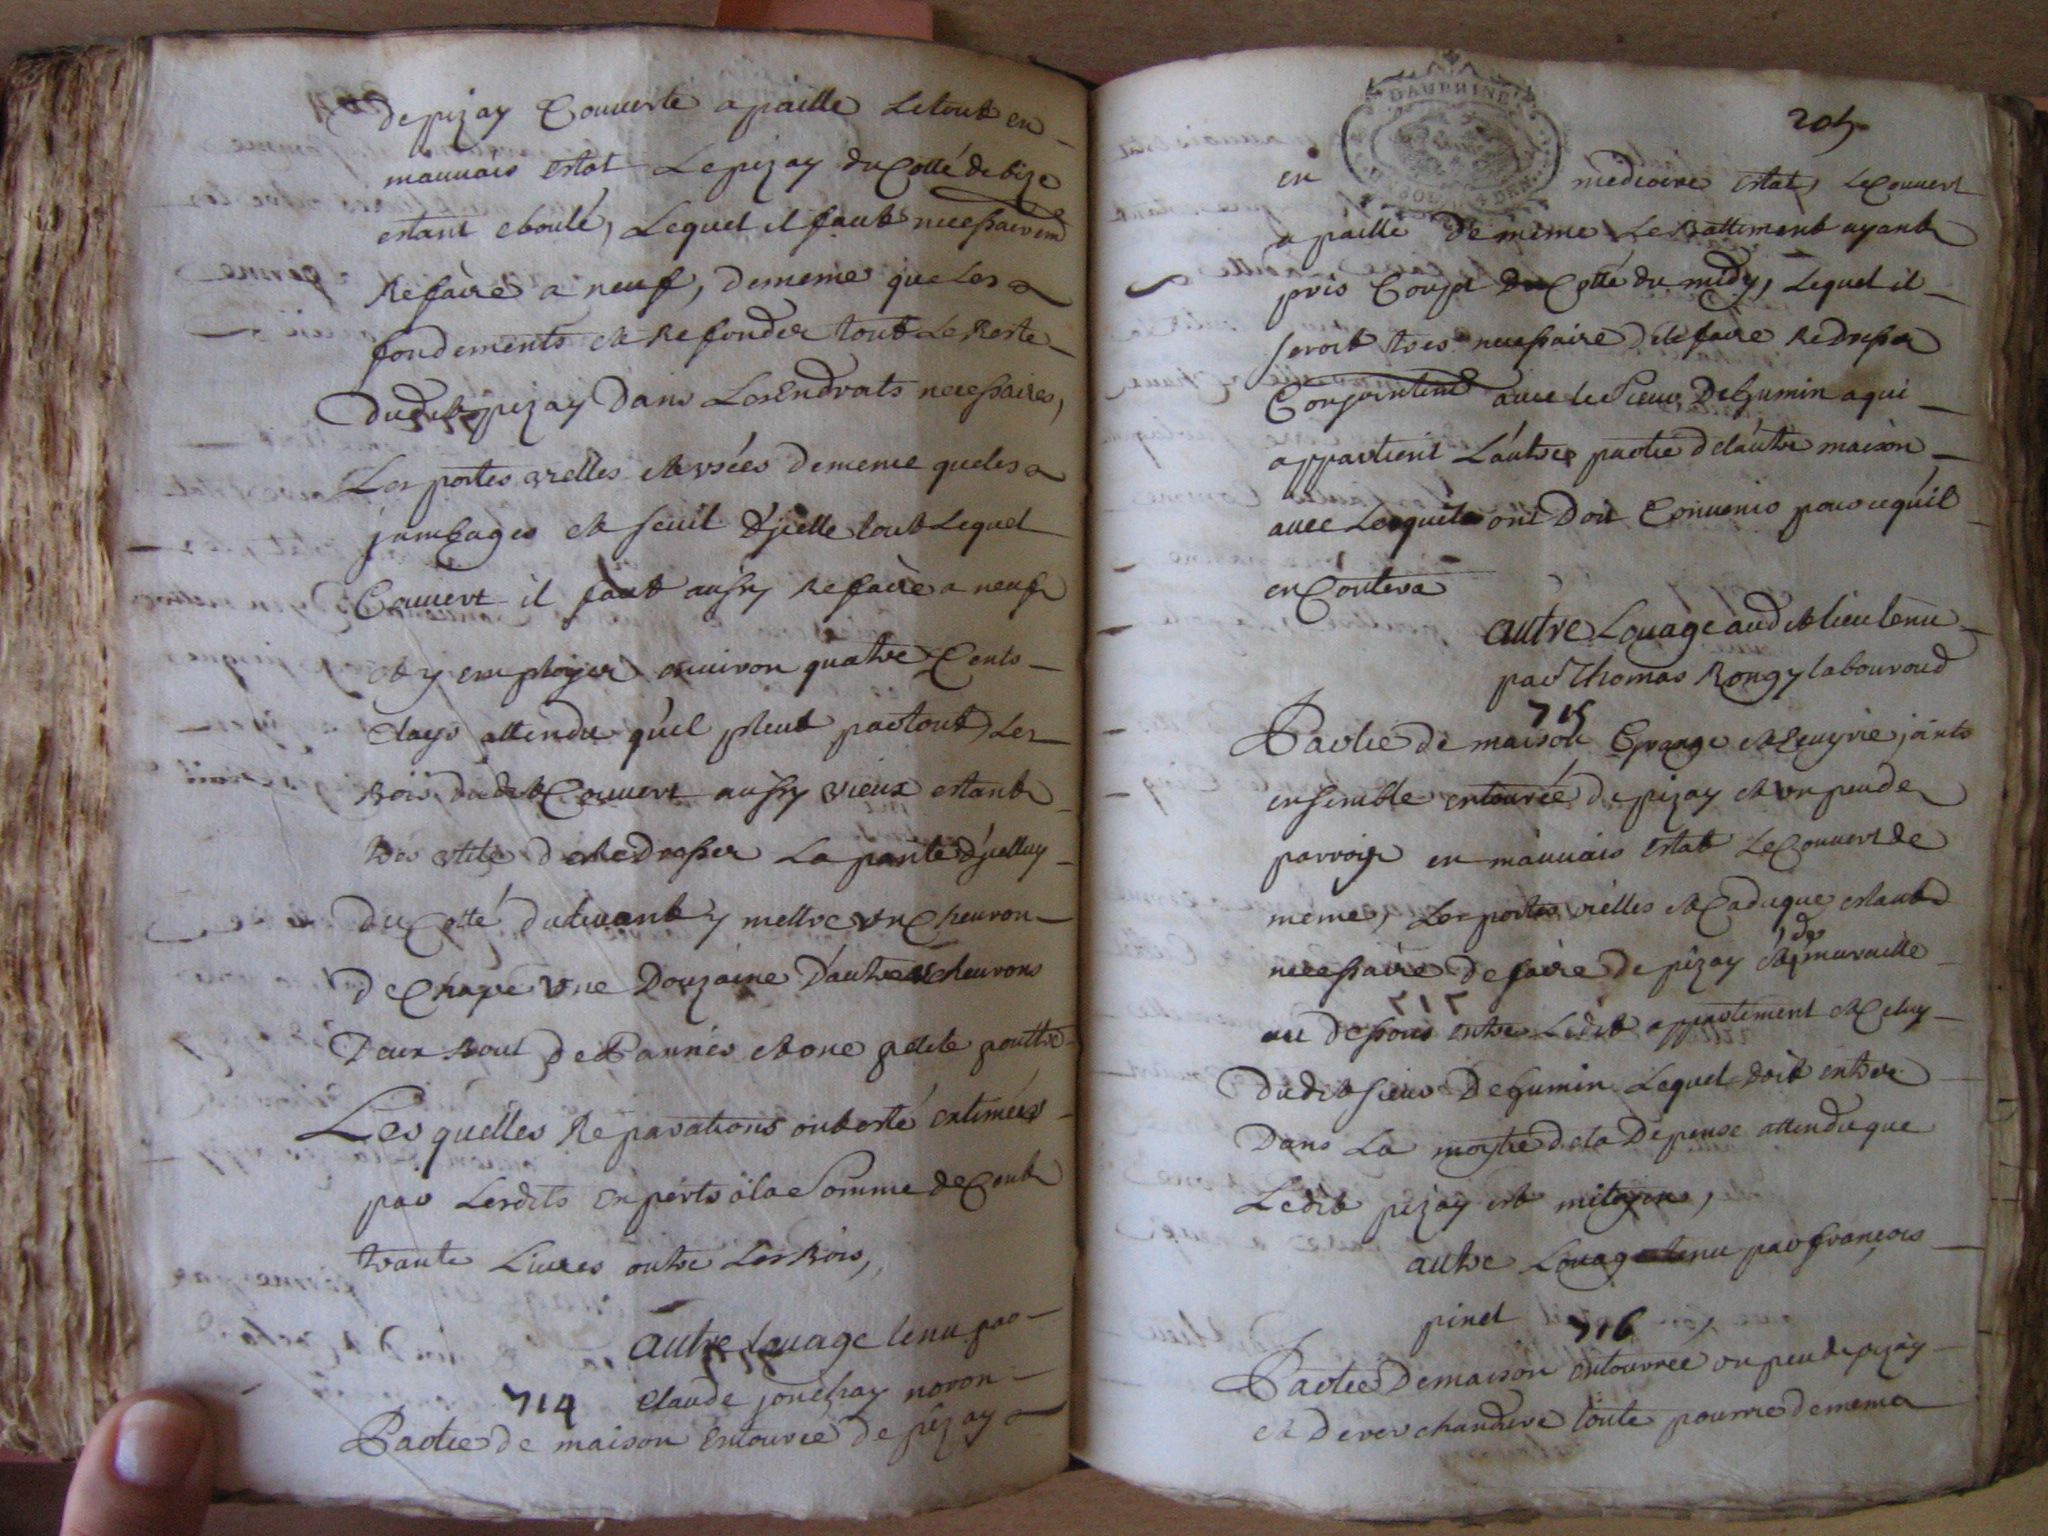 de pizay Couuerte a paille Le tout en
mauuais estat Le pizay du Costé de bize
estant eboulé, Lequel il faut necessairem
Refaire a neuf, de meme que Les
fondements et Refonder tout Le Reste
dudit pizay Dans Les Endroits necessaires,
Les portes vielles et vsées de meme que les
jambages et seuil d'jcelle tout Lequel
Couuert il faut aussy Refaire a neuf
et y employer enuiron quatre Cents
clays attendu qu'il pleut partout, Les
Bois dudit Couuert aussy vieux estant
tres vtile de Redresser La pante d'jcelluy
du Costé du leuant y mettre vn cheuron
de Crape vne Douzaine d'autres cheurons
Deux bout de Pannes et vne petite pouttre
Les quelles Reparations ont esté estimées
par Lesdits experts a la Somme de Cent
trante Liures outre Les Bois,
autre Louage tenu par
714 Claude jonchay noron
Partie de maison entourée de pizay
205
DAUPHINE
en mediocre estat, Le Couuert
a paille De meme Le Battiment ayant
pris Coup Du Costé du midy, Lequel il
seroit tres necessaire de le faire Redresser
Conjointemt auec le Sieur De Gumin a qui
appartient L'autre partie de l'autre maison
auec Lesquels ont Doit Conuenir pour ce qu'il
en Coutera
autre Louage audit lieu tenu
par Thomas Rongy laboureud
715
Partie de maison Grange et Ecuyrie joints
ensemble entourée de pizay et vn peu de
parroir en mauuais estat Le Couuert de
meme, Les portes vielles et Caduque estant
necessaire de faire de pizay et de muraille
au dessous entre Ledit appartiment et Celuy
Dudit Sieur De Gumin Lequel doit entrer
Dans La moytie de la Depense attendu que
Ledit pizay est mitoyen,
autre Louage tenu par françois
pinet 716
Partie De maison entourrée vn peu de pizay
et De ver chandere toute pourrie de meme